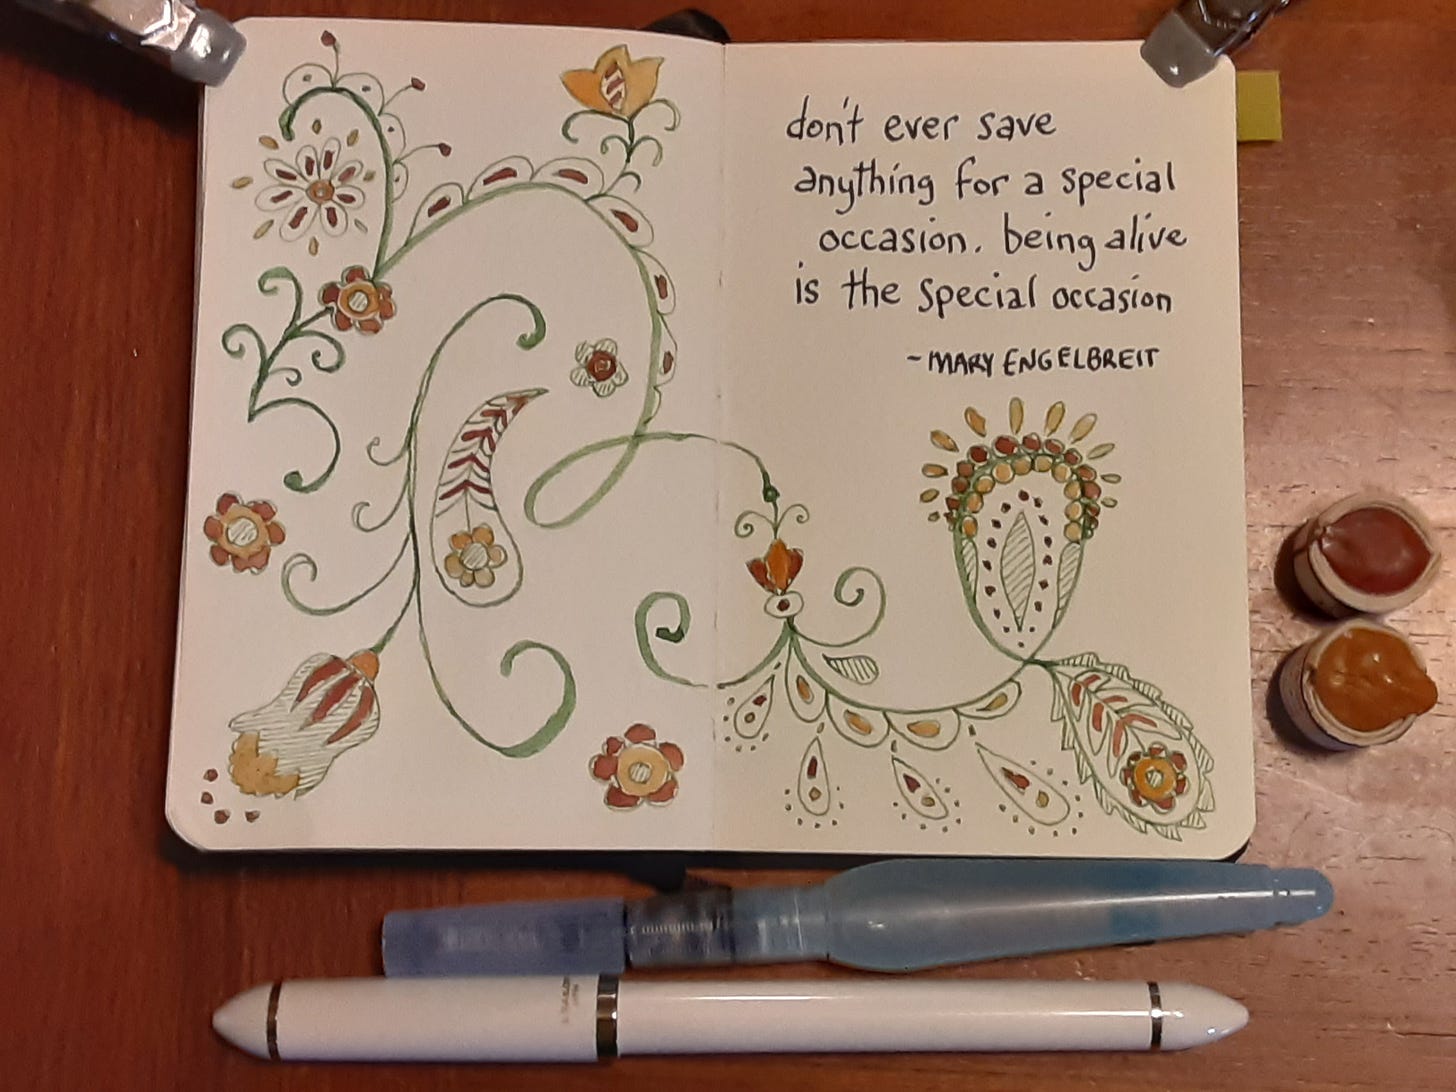 don't ever save
anything for a special
occasion. being alive
is the special occasion
~MARY ENGELBREIT